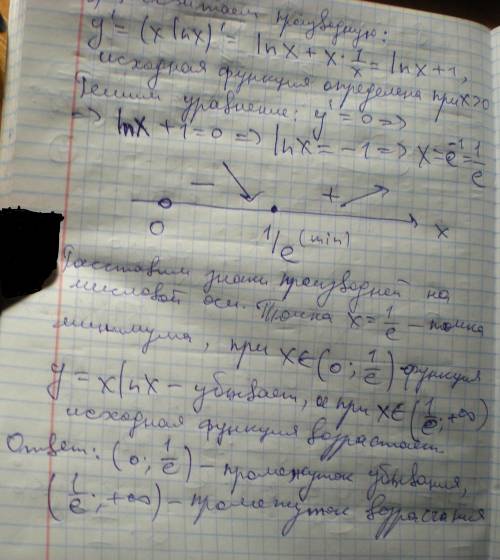 считаем производную:
y' = (x lnx)' = lnx + x · 1/x = lnx + 1,
исходная функция определена при x>0
Решим уравнение: y' = 0 =>
=> lnx + 1 = 0 => lnx = -1 => x = e⁻¹ = 1/e
− +
0 1/e (min) x
Расставим знаки производной на
числовой оси. Точка x = 1/e – точка
минимума, при x∈(0; 1/e) функция
y = x lnx – убывает, а при x∈(1/e; +∞)
исходная функция возрастает
Ответ: (0; 1/e) – промежуток убывания,
(1/e; +∞) – промежуток возрастания